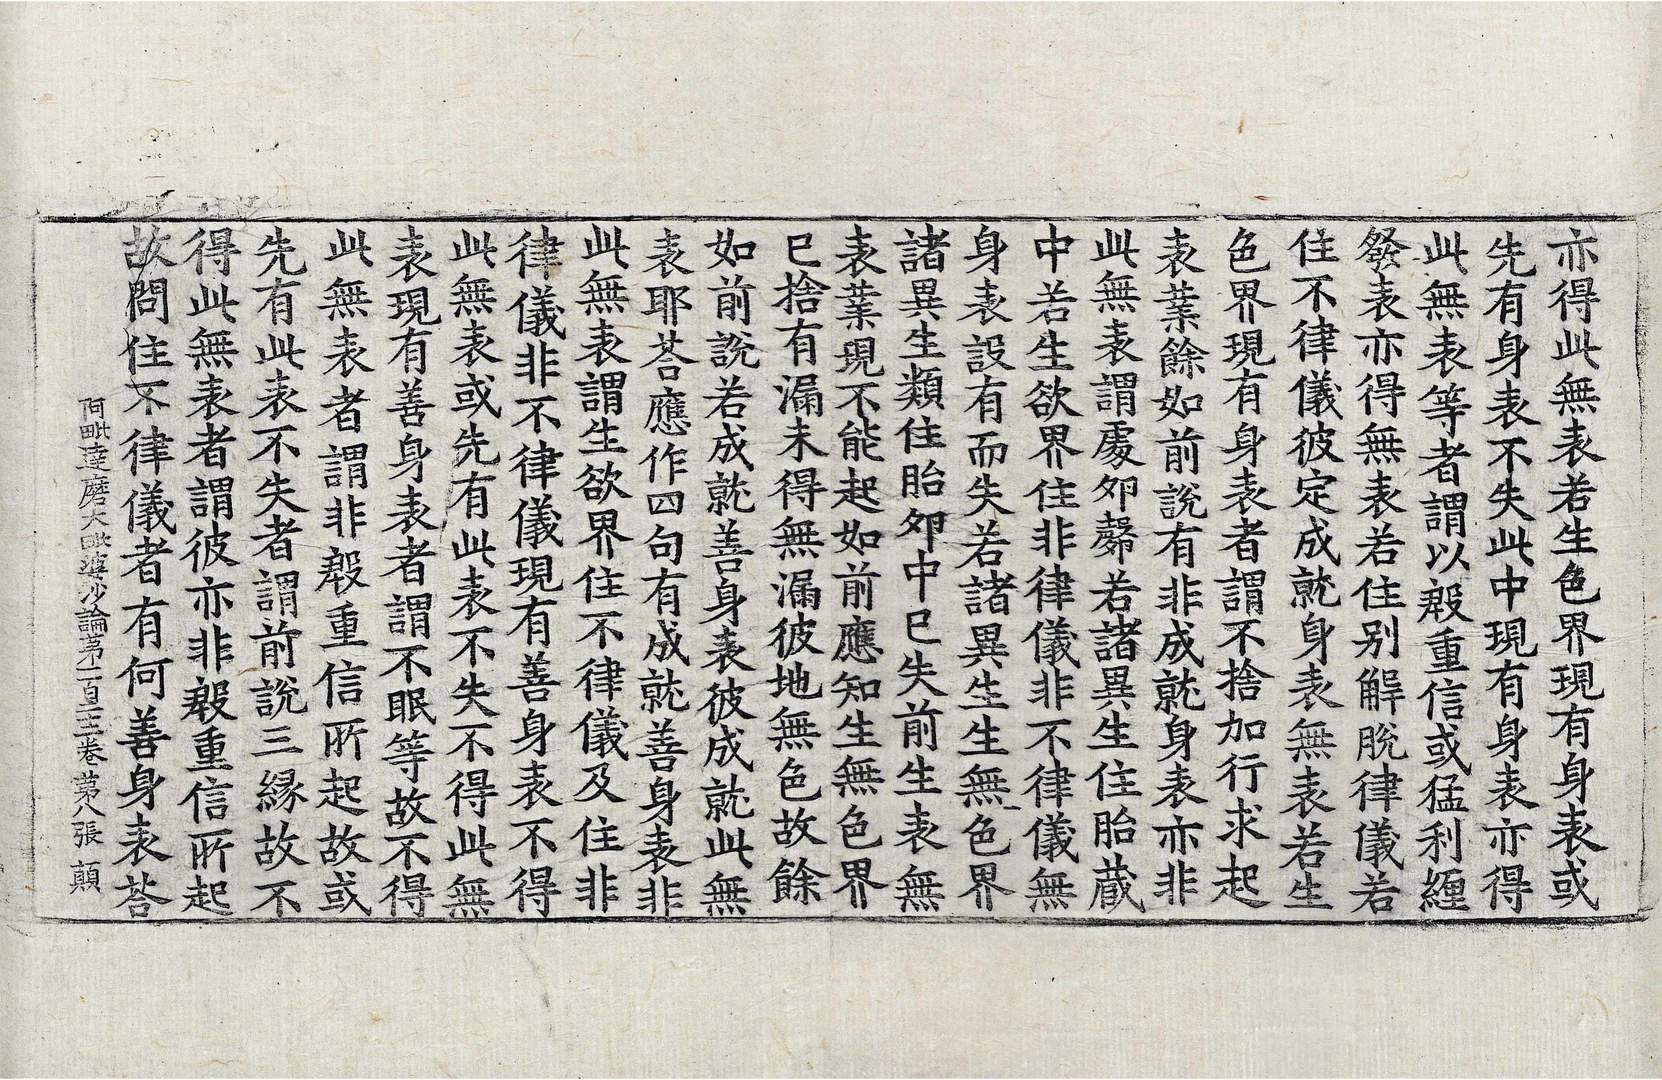 亦得此無表若生色界現有身表或
先有身表不失此中現有身表亦得
此無表等者謂以殷重信或猛利纏
發表亦得無表若住别解脫律儀若
住不律儀彼定成就身表無表若生
色界現有身表者謂不捨加行求起
表業餘如前說有非成就身表亦非
此無表謂處卵㲉若諸異生住胎藏
中若生欲界住非律儀非不律儀無
身表設有而失若諸異生生無色界
諸異生類住胎卵中已失前生表無
表業現不能起如前應知生無色界
已捨有漏未得無漏彼地無色故餘
如前說若成就善身表彼成就此無
表耶荅應作四句有成就善身表非
此無表謂生欲界住不律儀及住非
律儀非不律儀現有善身表不得
此無表或先有此表不失不得此無
表現有善身表者謂不眠等故不得
此無表者謂非殷重信所起故或
先有此表不失者謂前說三緣故不
得此無表者謂彼亦非殷重信所起
故問住不律儀者有何善身表荅
阿毗達磨大毗婆沙論第一百二十三卷 第八張 顛